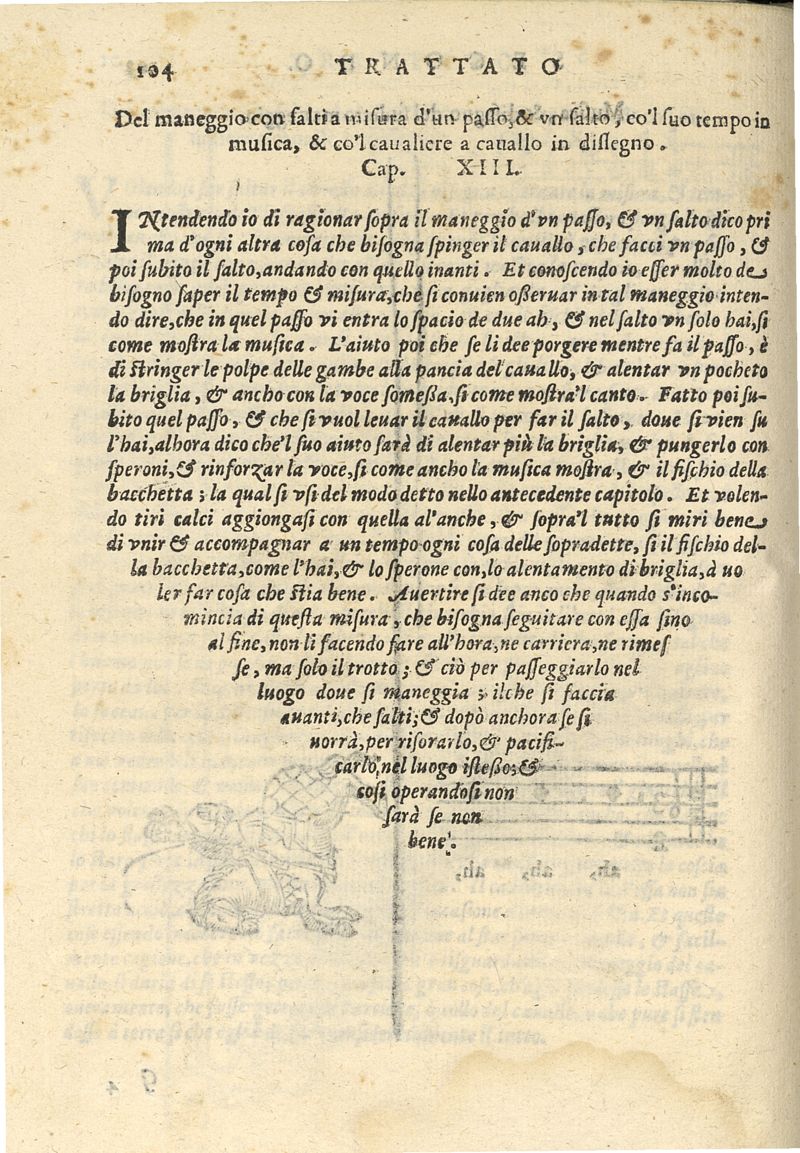 104 TRATTATO
Del maneggio con salti a misura d'un passo, & vn salto, co'l suo tempo in
musica, & co'l caualiere a cauallo in dissegno.
Cap. XIII.
INtendendo io di ragionar sopra il maneggio d'vn passo, & vn salto dico pri
ma d'ogni altra cosa che bisogna spinger il cauallo, che facci vn passo, &
poi subito il salto, andando con quello inanti. Et conoscendo io esser molto de
bisogno saper il tempo & misura, che si conuien osseruar in tal maneggio inten-
do dire, che in quel passo vi entra lo spacio de due ah, & nel salto vn solo hai, si
come mostra la musica. L'aiuto poi che se li dee porgere mentre fa il passo, è
di stringer le polpe delle gambe alla pancia del cauallo, & alentar vn pocheto
la briglia, & ancho con la voce somessa, si come mostra'l canto. Fatto poi su-
bito quel passo, & che si vuol leuar il cauallo per far il salto, doue si vien su
l'hai, alhora dico che'l suo aiuto sarà di alentar più la briglia, & pungerlo con
speroni, & rinforzar la voce, si come ancho la musica mostra, & il fischio della
bacchetta; la qual si vsi del modo detto nello antecedente capitolo. Et volen-
do tiri calci aggiongasi con quella al'anche, & sopra'l tutto si miri bene
di vnir & accompagnar a un tempo ogni cosa delle sopradette, si il fischio del-
la bacchetta, come l'hai, & lo sperone con, lo alentamento di briglia, à uo
ler far cosa che stia bene. Auertire si dee anco che quando s'inco-
mincia di questa misura, che bisogna seguitare con essa sino
al fine, non li facendo fare all'hora, ne carriera, ne rimes
se, ma solo il trotto; & ciò per passeggiarlo nel
luogo doue si maneggia; ilche si faccia
auanti, che salti; & dopò anchora se si
uorrà, per risorarlo, & pacifi-
carlo, nel luogo istesso; &
cosi operandosi non
sarà se non
bene.